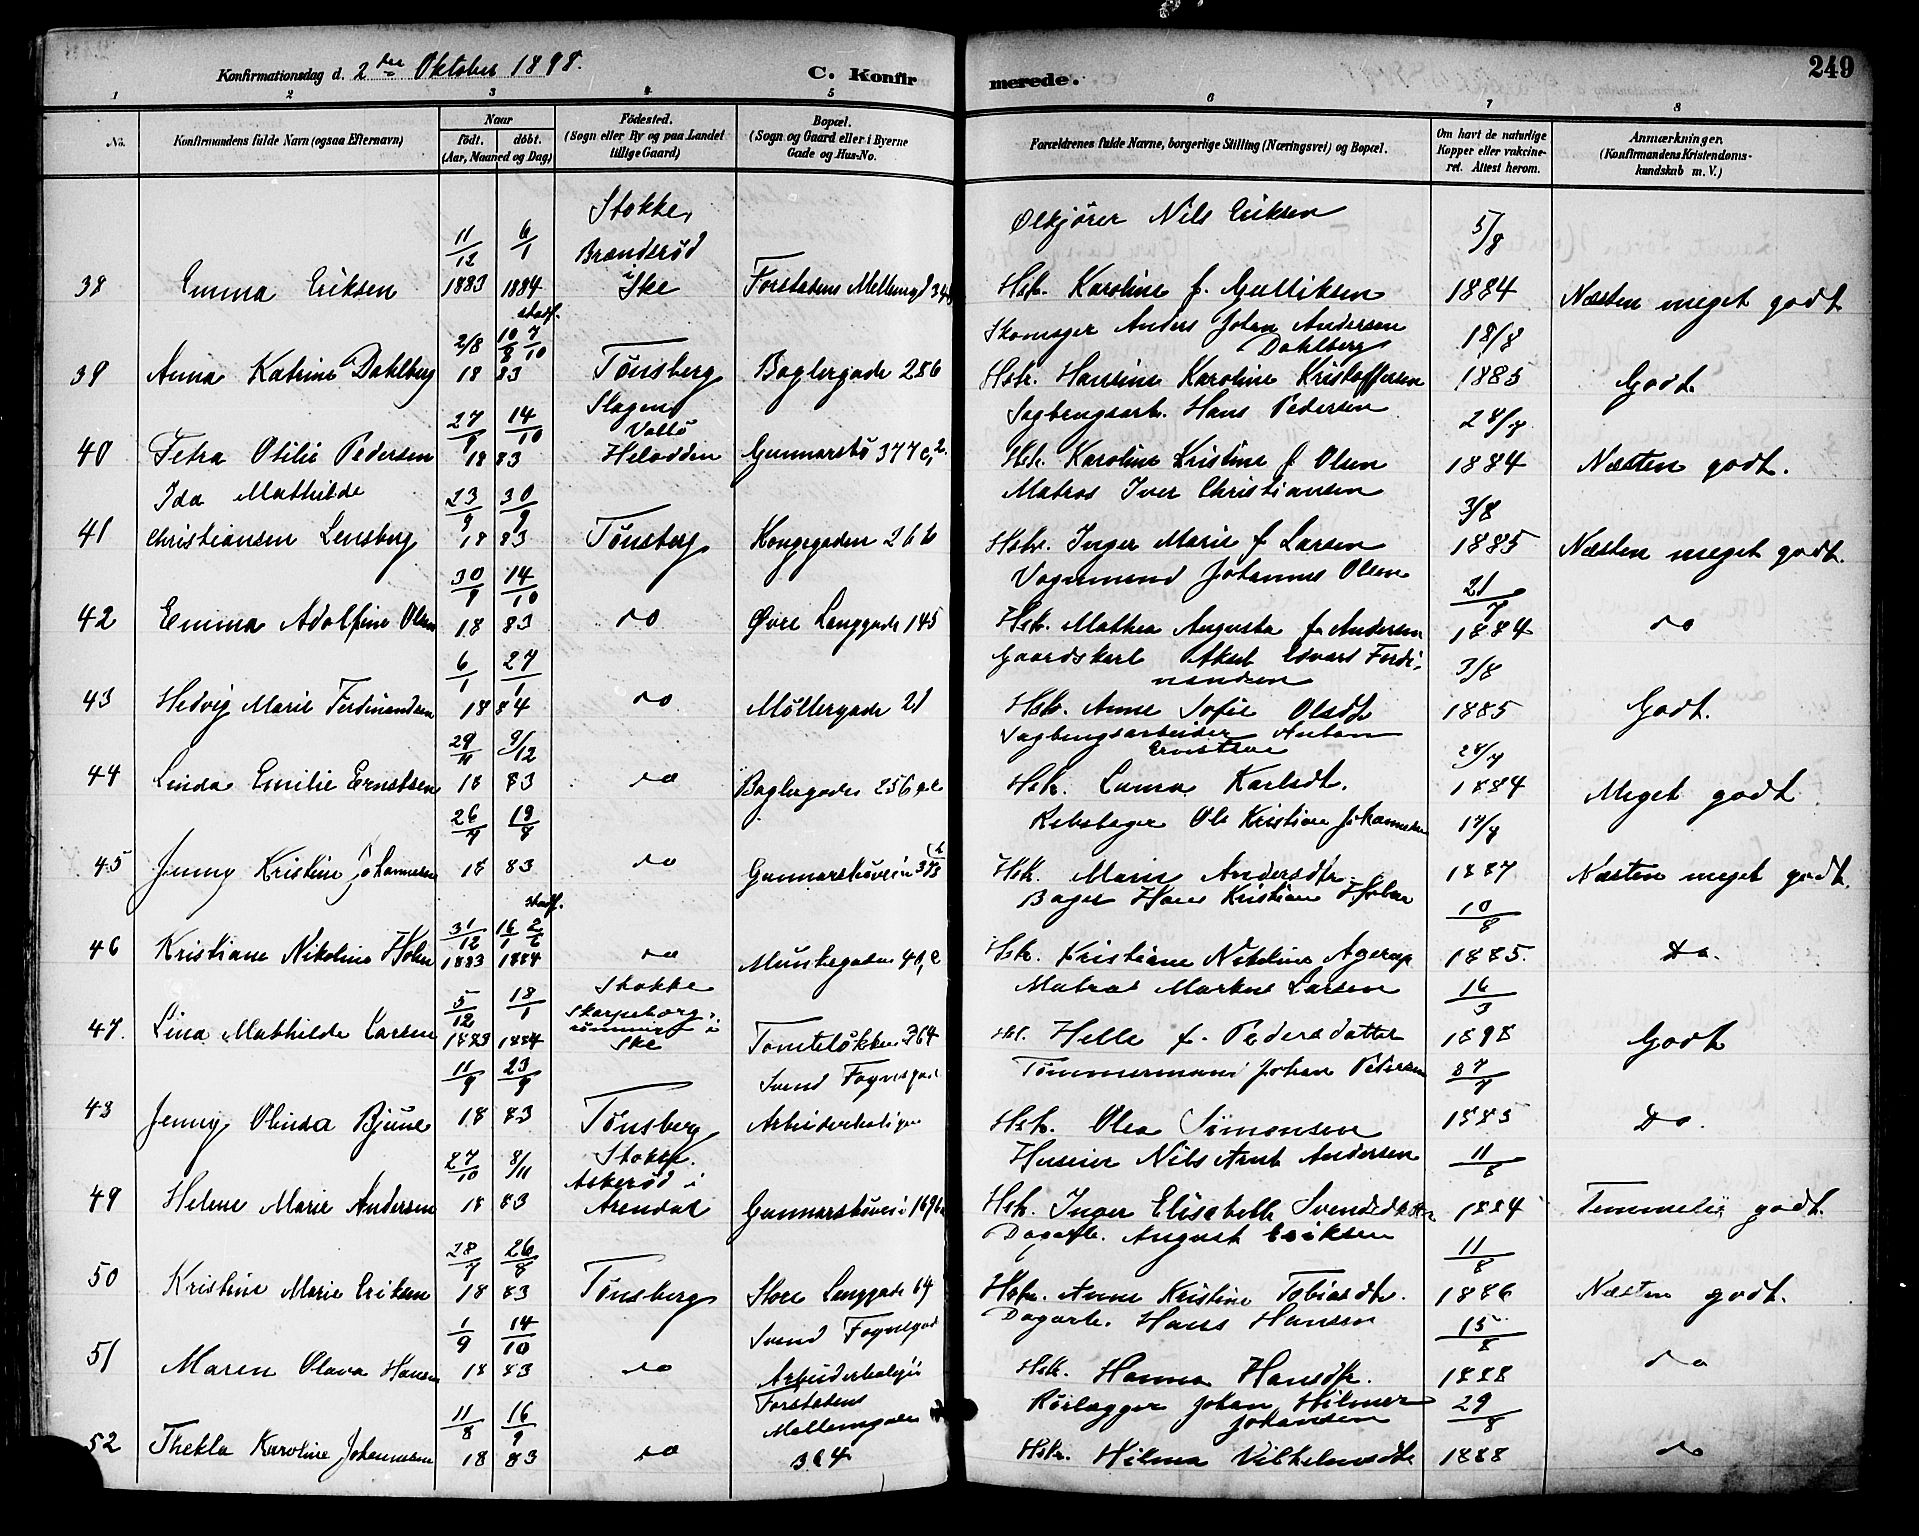 Konfirmationsdag d. 2den Oktober 1898.
C. Konfirmerede.
249
1 2 3 4 5 6 7 8
No.
Konfirmandens fulde Navn (ogsaa Efternavn)
Naar
født. døbt.
(Aar, Maaned og Dag)
Fødested.
(Sogn eller By og paa Landet
tillige Gaard)
Bopæl.
(Sogn og Gaard eller i Byerne
Gade og Hus-No.
Forældrenes fulde Navne, borgerlige Stilling (Næringsvei) og Bopæl.
Om havt de naturlige
Kopper eller vakcine-
ret. Attest herom.
Anmærkninger.
(Konfirmandens Kristendoms-
kundskab m. V.)
38 Emma Eriksen 11/12 1883 6/1 1884 Stokke, Brænderød i Ske Forstadens Mellemgd
Ølkjører Nils Eriksen
Hstr. Karoline f. Gulliksen 5/8 1884 Næsten meget godt
39 Anna Katrine Dahlberg 2/8 10/8 stadf. 7/10 1883 Tønsberg Baglergade 286
Skomager Anders Johan Andersen Dahlberg
Hstr. Hansine Karoline Kristoffersen 18/8 1885 Godt.
40 Petra Otilie Pedersen 27/9 14/10 1883 Slagen Vallø Gunnarsbø 377 c, 2.
Sagbrugsarb. Hans Pedersen
Hstr. Karoline Kristine f. Olsen 28/7 1884 Næsten godt.
41 Ida Mathilde
Christiansen Lensberg 23/9 30/9 1883 Tønsberg Kongegaden 26 b
Matros Iver Christiansen
Hstr. Inger Marie f. Larsen 3/8 1885 Næsten meget godt.
42 Emma Adolfine Olsen 30/9 14/10 1883 do Øvre Langgade 145
Vognmand Johannes Olsen
Hstr. Mathea Augusta f. Andersen 21/7 1884 do
43 Hedvig Marie Ferdinandsen 6/1 27/1 1884 do Møllergade 21
Gaardskarl Aksel Edvart Ferdi-
nandsen
Hstr. Anne Sofie Olsdtr 3/8 1885 Godt.
44 Linda Emilie Ernstsen 29/11 9/12 1883 do Baglergade 256
Sagbrugsarbeider Anton
Ernstsen
Hstr. Karlsdt. 28/7 1884 Meget godt
45 Jenny Kristine Johannesen 26/7 19/8 1883 do Gunnarsbøvein
Rebslager Ole Kristian Johannesen
Hstr. Marie Andersdtr. 17/7 1887 Næsten meget godt.
46 Kristiane Nikoline Holm 31/12 1883 16/1 stadf. 2/6 1884 do Munkegaden 40,
Bager Hans Kristian Holm
Hstr. Kristiane Nikoline Agerup 10/8 1885. Do.
47. Lina Mathilde Larsen 5/12 1883 18/1 1884 Stokke i Ske Tomteløkken 364
Matros Markus Larsen
Hst. Helle f. Pedersdatter 16/3 1898 Godt
48 Jenny Olinda Bjune 11/9 23/9 1883 Tønsberg Svend Foynsgad Arbeiderbolig
Tømmermand Johan Pedersen
Hstr. Olea Simonsen 27/7 1885 Do.
49 Helene Marie Andersen 27/10 8/11 1883 Stokke. Askerød i Arendal Gunnarsbøvei
Huseier Nils Arnt Andersen
Hstr. Inger Elisabeth Svendsdatter 11/8 1884 Temmelig godt.
50 Kristine Marie Eriksen 28/7 26/8 1883 Tønsberg Store Langgade 69
Dagarb. August Eriksen
Hstr. Anne Kristine Tobiasdtr. 11/8 1886 Næsten godt.
51 Maren Olava Hansen 1/9 14/10 1883 do Svend Foynsgad Arbeiderbolig
Dagarb. Hans Hansen
Hstr. Hanna Hansdtr. 15/8 1888 do
52 Thekla Karoline Johannesen 11/8 16/9 1883 do Forstadens Mellemgaden 364
Rørlægger Johan Hilmer
Johansen
Hstr. Hilma Vilhelmsdtr 29/8 1888 do